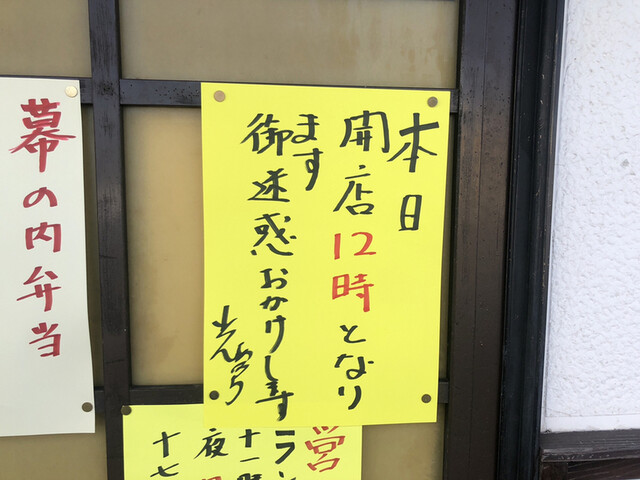 本日
開店12時となり
ます
御迷惑おかけします
営
ラン
十一時
夜
十七
幕の内弁当